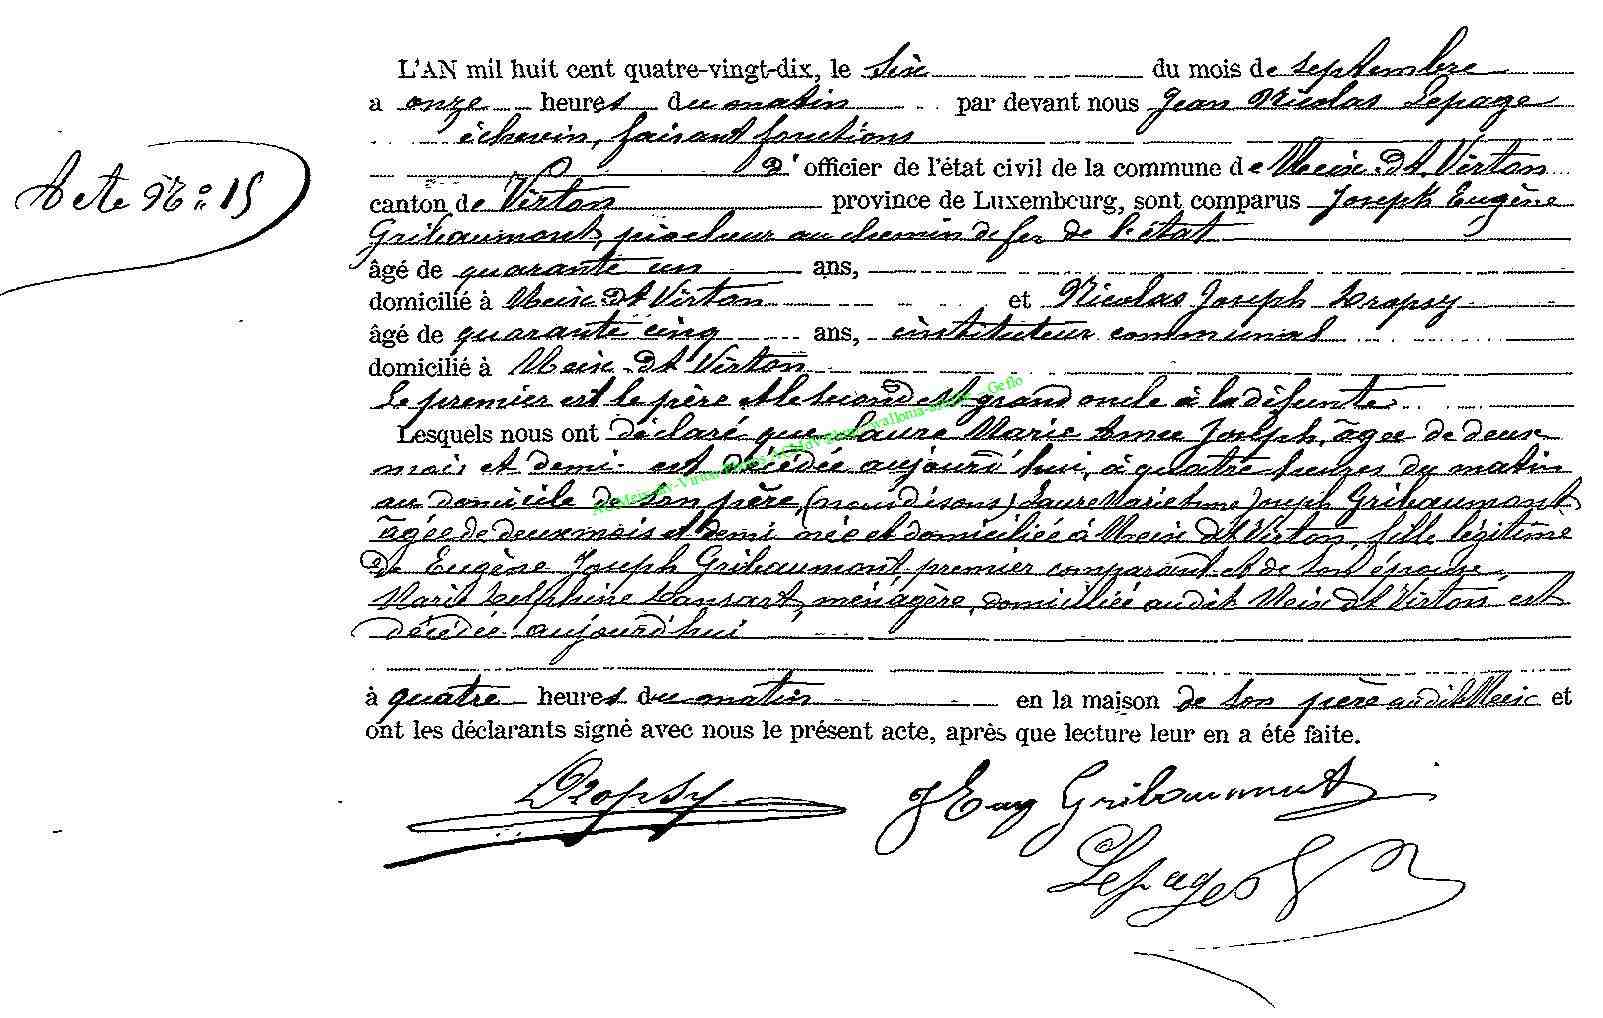 L'AN mil huit cent quatre-vingt-dix, le six du mois de septembre
a onze heures du matin par devant nous Jean Nicolas Lepage
échevin, faisant fonctions
Acte No: 15
d' officier de l'état civil de la commune de Meix-Dt Virton
canton de Virton province de Luxembourg, sont comparus Joseph Eugène
Gribaumont, piocheur au chemin de fer de l'état
âgé de quarante un ans,
domicilié à Meix-Dt Virton et Nicolas Joseph Dropsy
âgé de quarante cinq ans, instituteur communal
domicilié à Meix-Dt Virton
Le premier est le père et le second est grand oncle à la défunte
Lesquels nous ont déclaré que Laure Marie Joseph, âgée de deux
mois et demi est décédée aujourd'hui, à quatre heures du matin
au domicile de son père, (nous disons) Laure Marie Joseph Gribaumont
âgée de deux mois et demi née et domiciliée à Meix Dt Virton, fille légitime
de Eugène Joseph Gribaumont, premier comparant et de son épouse,
Marie Delphine Lansart, ménagère, domiciliée audit Meix Dt Virton est
décédée aujourd'hui
à quatre heures du matin en la maison de son père audit Meix et
ont les déclarants signé avec nous le présent acte, après que lecture leur en a été faite.
Dropsy J Eug Gribaumont
Lepage